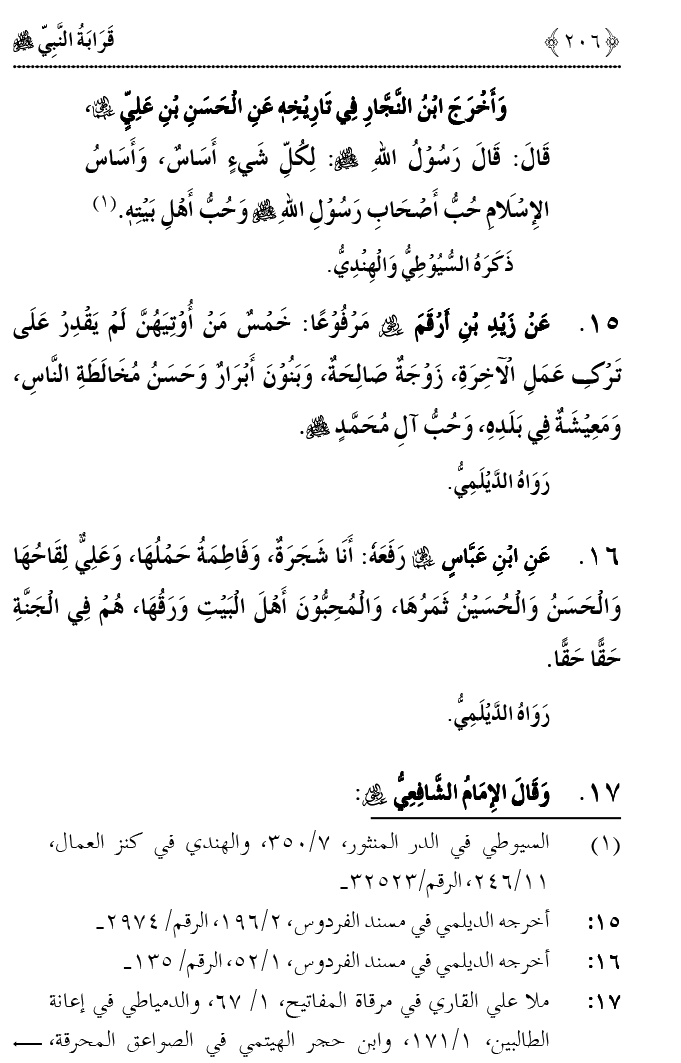 ﴿٢٠٦﴾ قَرَابَةُ النَّبِيِّ ﷺ
وَأَخْرَجَ ابْنُ النَّجَّارِ فِي تَارِيْخِهٖ عَنِ الْحَسَنِ بْنِ عَلِيٍّ ،
قَالَ: قَالَ رَسُوْلُ اللهِ ﷺ: لِكُلِّ شَيءٍ أَسَاسٌ، وَأَسَاسُ
الإِسْلَامِ حُبُّ أَصْحَابِ رَسُوْلِ اللهِ ﷺ وَحُبُّ أَهْلِ بَيْتِهٖ.(١)
ذَكَرَهُ السُّيُوْطِيُّ وَالْهِنْدِيُّ.
١٥. عَنْ زَيْدِ بْنِ أَرْقَمَ مَرْفُوْعًا: خَمْسٌ مَنْ أُوْتِيَهُنَّ لَمْ يَقْدِرْ عَلَى
تَرْكِ عَمَلِ الْآخِرَةِ، زَوْجَةٌ صَالِحَةٌ، وَبَنُوْنَ أَبْرَارٌ وَحَسَنُ مُخَالَطَةِ النَّاسِ،
وَمَعِيْشَةٌ فِي بَلَدِهِ، وَحُبُّ آلِ مُحَمَّدٍ ﷺ.
رَوَاهُ الدَّيْلَمِيُّ.
١٦. عَنِ ابْنِ عَبَّاسٍ رَفَعَهٗ: أَنَا شَجَرَةٌ، وَفَاطِمَةُ حَمْلُهَا، وَعَلِيٌّ لِقَاحُهَا
وَالْحَسَنُ وَالْحُسَيْنُ ثَمَرُهَا، وَالْمُحِبُّوْنَ أَهْلَ الْبَيْتِ وَرَقُهَا، هُمْ فِي الْجَنَّةِ
حَقًّا حَقًّا.
رَوَاهُ الدَّيْلَمِيُّ.
١٧. وَقَالَ الإِمَامُ الشَّافِعِيُّ :
(١) السيوطي في الدر المنثور، ٣٥٠/٧، والهندي في كنز العمال،
٢٤٦/١١، الرقم/٣٢٥٢٣ـ
١٥: أخرجه الديلمي في مسند الفردوس، ١٩٦/٢، الرقم/ ٢٩٧٤ـ
١٦: أخرجه الديلمي في مسند الفردوس، ٥٢/١، الرقم/ ١٣٥ـ
١٧: ملا علي القاري في مرقاة المفاتيح، ١/ ٦٧، والدمياطي في إعانة
الطالبين، ١٧١/١، وابن حجر الهيتمي في الصواعق المحرقة،